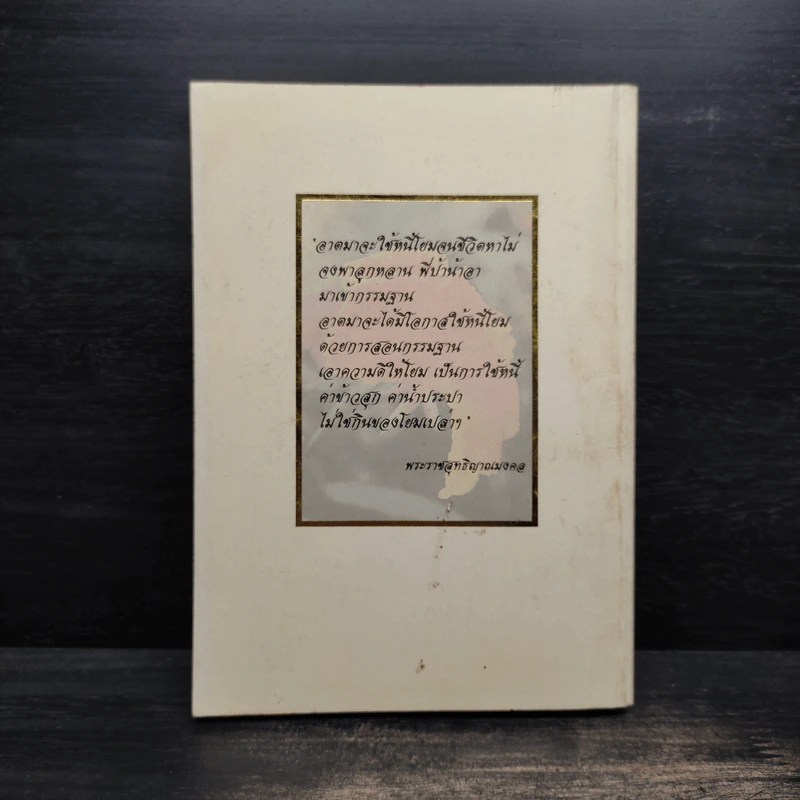 "อาตมาจะใช้หนี้โยมจนชีวิตหาไม่
จงพาลูกหลาน พี่ป้าน้าอา
มาเข้ากรรมฐาน
อาตมาจะได้มีโอกาสใช้หนี้โยม
ด้วยการสอนกรรมฐาน
เอาความดีให้โยม เป็นการใช้หนี้
ค่าข้าวสุก ค่าน้ำประปา
ไม่ใช่กินของโยมเปล่าๆ"
พระราชสุทธิญาณมงคล